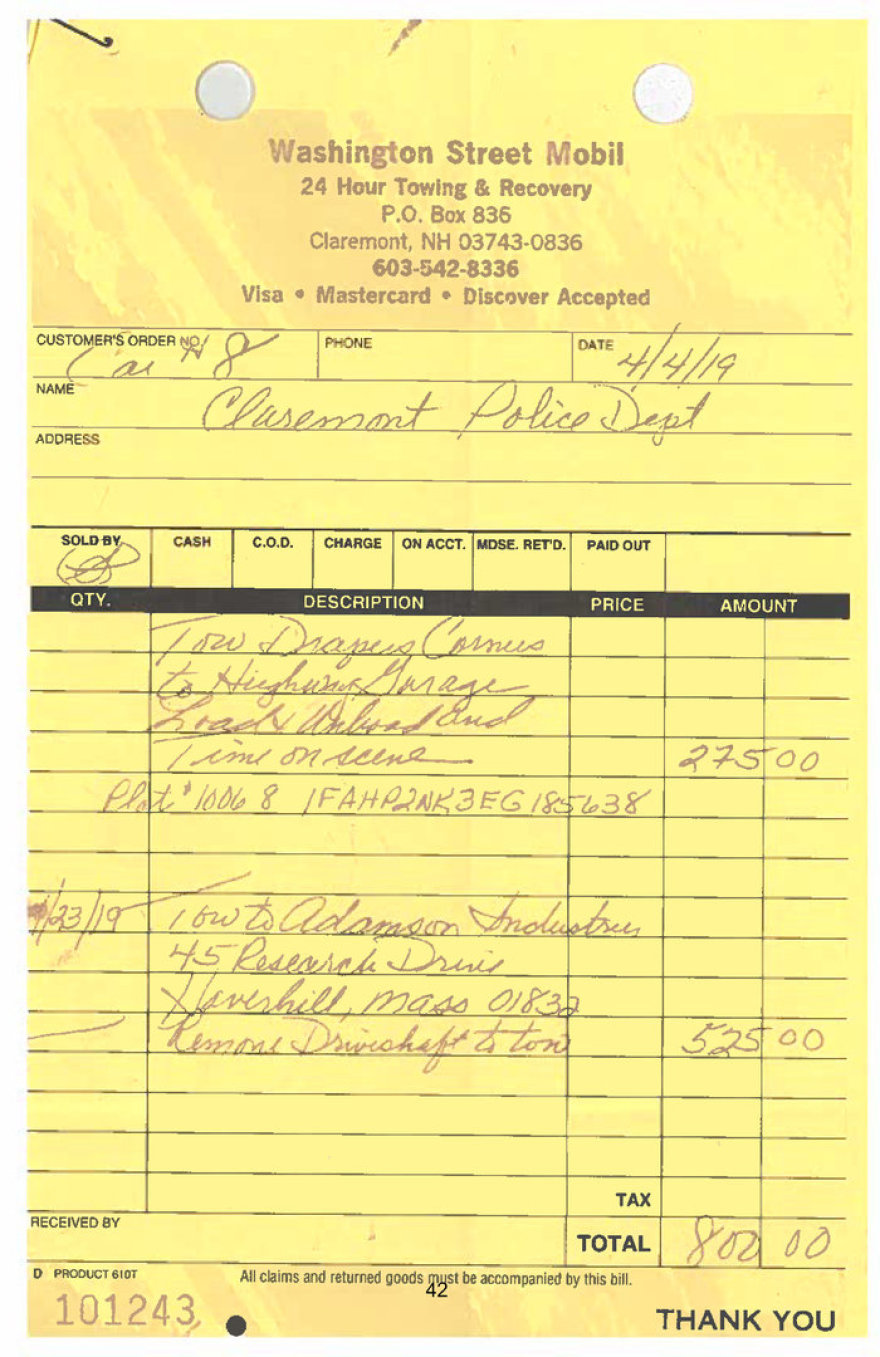 Washington Street Mobil
24 Hour Towing & Recovery
P.O. Box 836
Claremont, NH 03743-0836
603-542-8336
Visa • Mastercard • Discover Accepted
CUSTOMER'S ORDER NO. Car # 8 PHONE DATE 4/4/19
NAME Claremont Police Dept
ADDRESS
SOLD BY CASH C.O.D. CHARGE ON ACCT. MDSE. RET'D. PAID OUT
QTY. DESCRIPTION PRICE AMOUNT
Tow Drapers Corners
to Highway Garage
Load & Unload and
Time on scene 275 00
Plat # 1006 8 1FAHP2NK3EG185638
/23/19 Tow to Adamson Industries
45 Research Drive
Haverhill, Mass 01832
Remove Driveshaft to tow 525 00
TAX
RECEIVED BY
TOTAL 800 00
D PRODUCT 610T All claims and returned goods must be accompanied by this bill.
42
101243
THANK YOU